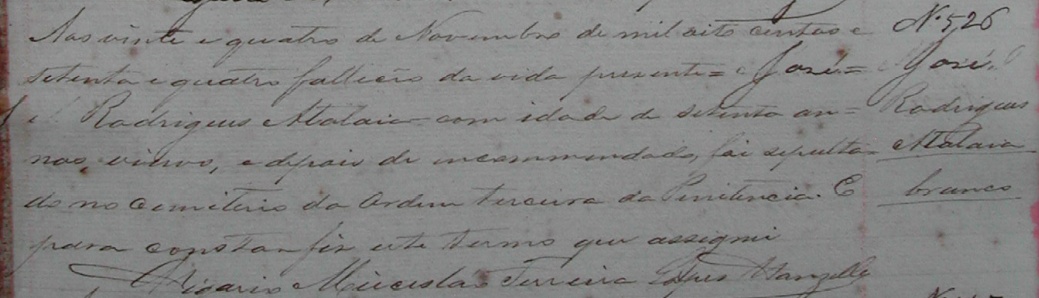 Aos vinte e quatro de Novembro de mil oito centos e
setenta e quatro falleceo da vida presente = José =
Rodrigues Atalaia com idade de setenta an=
nos, viuvo, e depois de incommendado, foi sepulta=
do no cemiterio da Ordem terceira da Penitencia. E
para constar fiz este termo que assignei
Vigario Ferreira Lopes Rangel
Nº 526
José
Rodrigues
Atalaia
branco